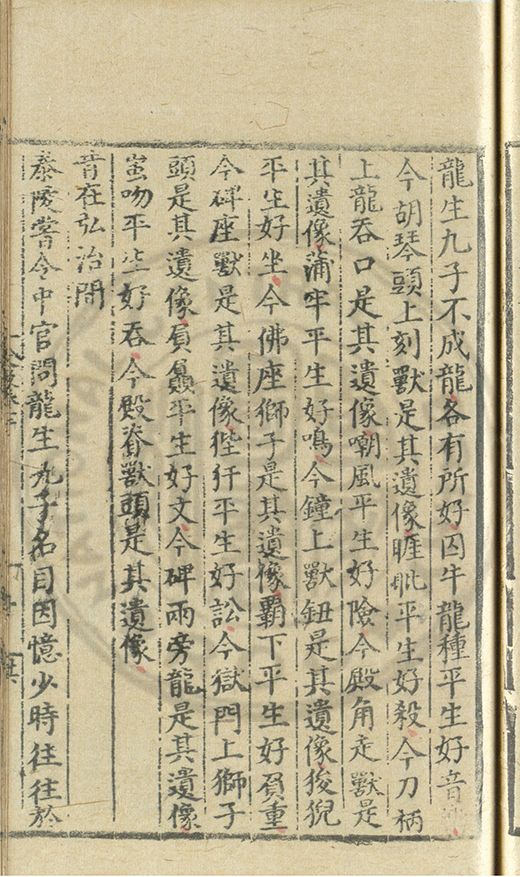 龍生九子不成龍各有所好囚牛龍種平生好音
今胡琴頭上刻獸是其遺像睚眦平生好殺今刀柄
上龍吞口是其遺像嘲風平生好險今殿角走獸是
其遺像蒲牢平生好鳴今鐘上獸鈕是其遺像狻猊
平生好坐今佛座獅子是其遺像霸下平生好負重
今碑座獸是其遺像狴犴平生好訟今獄門上獅子
頭是其遺像屓贔平生好文今碑兩旁龍是其遺像
蚩吻平生好吞今殿脊獸頭是其遺像
昔在弘治間
泰陵嘗令中官問龍生九子名目因憶少時往往於